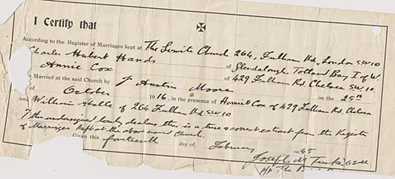 I Certify that
According to the Register of Marriages kept at The Servite Church 264, Fulham Rd, London SW10
Charles Hubert Hands of Totland Bay I of W
Annie Cox of 429 Fulham Rd. Chelsea S.W.10
Married at the said Church by J Austin Moore on the 25th
October 1916, in the presence of Harriet Cox of 429 Fulham Rd. Chelsea
William of 264 Fulham Rd SW10
I the undersigned hereby declare this is a true & correct extract from the Register
of Marriages kept at the above named Church
Given this fourteenth day of February 65
Joseph M